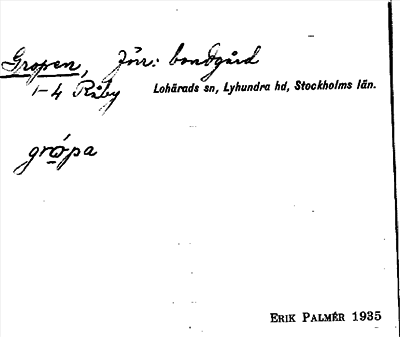 Gropen, Jör: bondgård
1-4 Råby Lohärads sn, Lyhundra hd, Stockholms län.
grópa
ERIK PALMÉR 1935